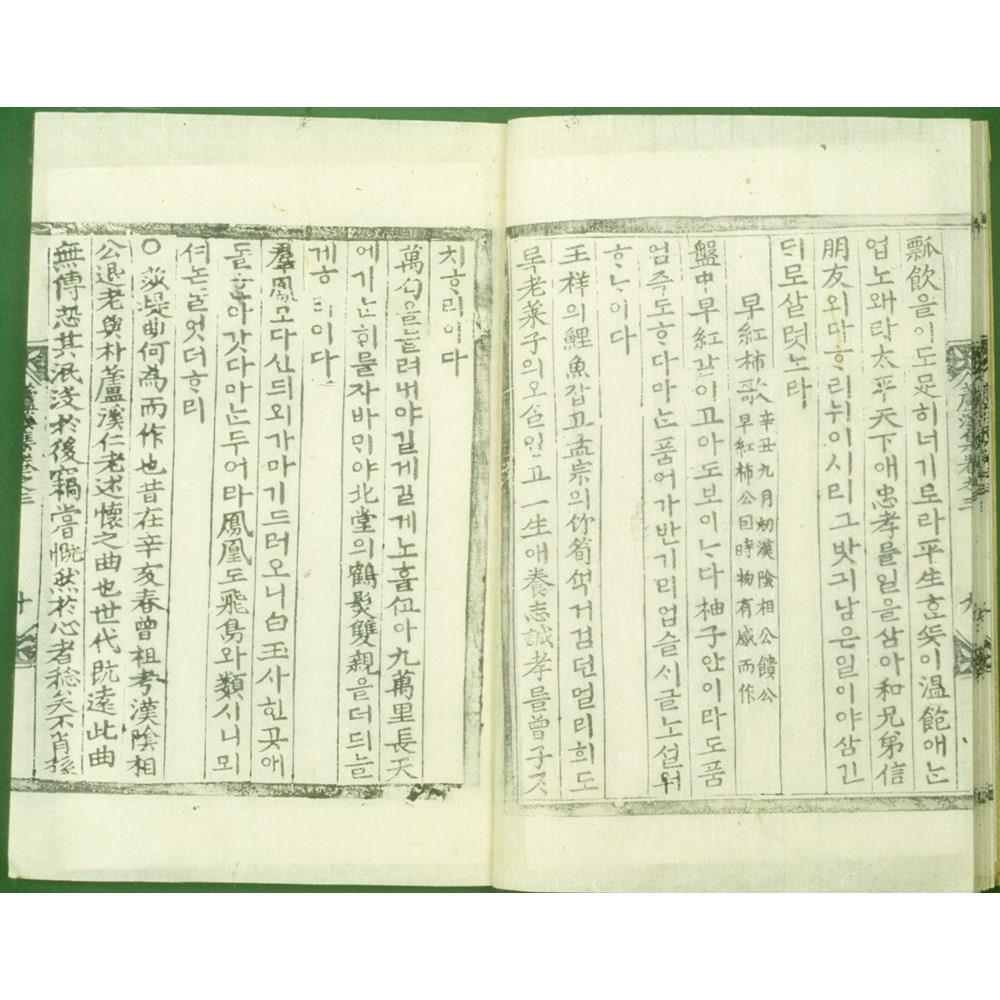 蘆溪集卷之三 九
瓢飮을이도足히너기로라平生ᄒᆞᆫᄠᅳ이溫飽애ᄂᆞᆫ
업노왜라太平天下애忠孝ᄅᆞᆯ일을삼아和兄弟信
朋友외다ᄒᆞ리뉘이시리그밧긔남은일이야삼긴
ᄃᆡ로살렷노라
早紅柿歌 辛丑九月初漢陰相公饋公
早紅柿公因時物有感而作
盤中早紅감이고아도보이ᄂᆞ다柚子안이라도품
엄즉도ᄒᆞ다마ᄂᆞᆫ품어가반기리업슬ᄉᆡ글노설워
ᄒᆞᄂᆞ이다
王祥의鯉魚잡고孟宗의竹筍것거검던멀리희도
록老萊子의오ᄉᆞᆯ입고一生애養志誠孝ᄅᆞᆯ曾子ᄀᆞᆺ
치ᄒᆞ리이다
萬勻을늘려내야길게길게노흘ᄭᅩ아九萬里長天
에가ᄂᆞᆫᄒᆡ를자바ᄆᆡ야北堂의鶴髮雙親을더듸늘
게ᄒᆞ리이다
羣鳳모다신듸외가마기드러오니白玉사힌곳애
돌ᄒᆞ나갓다마ᄂᆞᆫ두어라鳳凰도飛鳥와類시니뫼
셔논ᄃᆞᆯ엇더ᄒᆞ리
○莎堤曲何爲而作也昔在辛亥春曾祖考漢陰相
公退老與朴蘆溪仁老述懷之曲也世代旣遠此曲
無傳恐其泯沒於後竊嘗慨然於心者稔矣不肖孫
蘆溪集卷之三 十